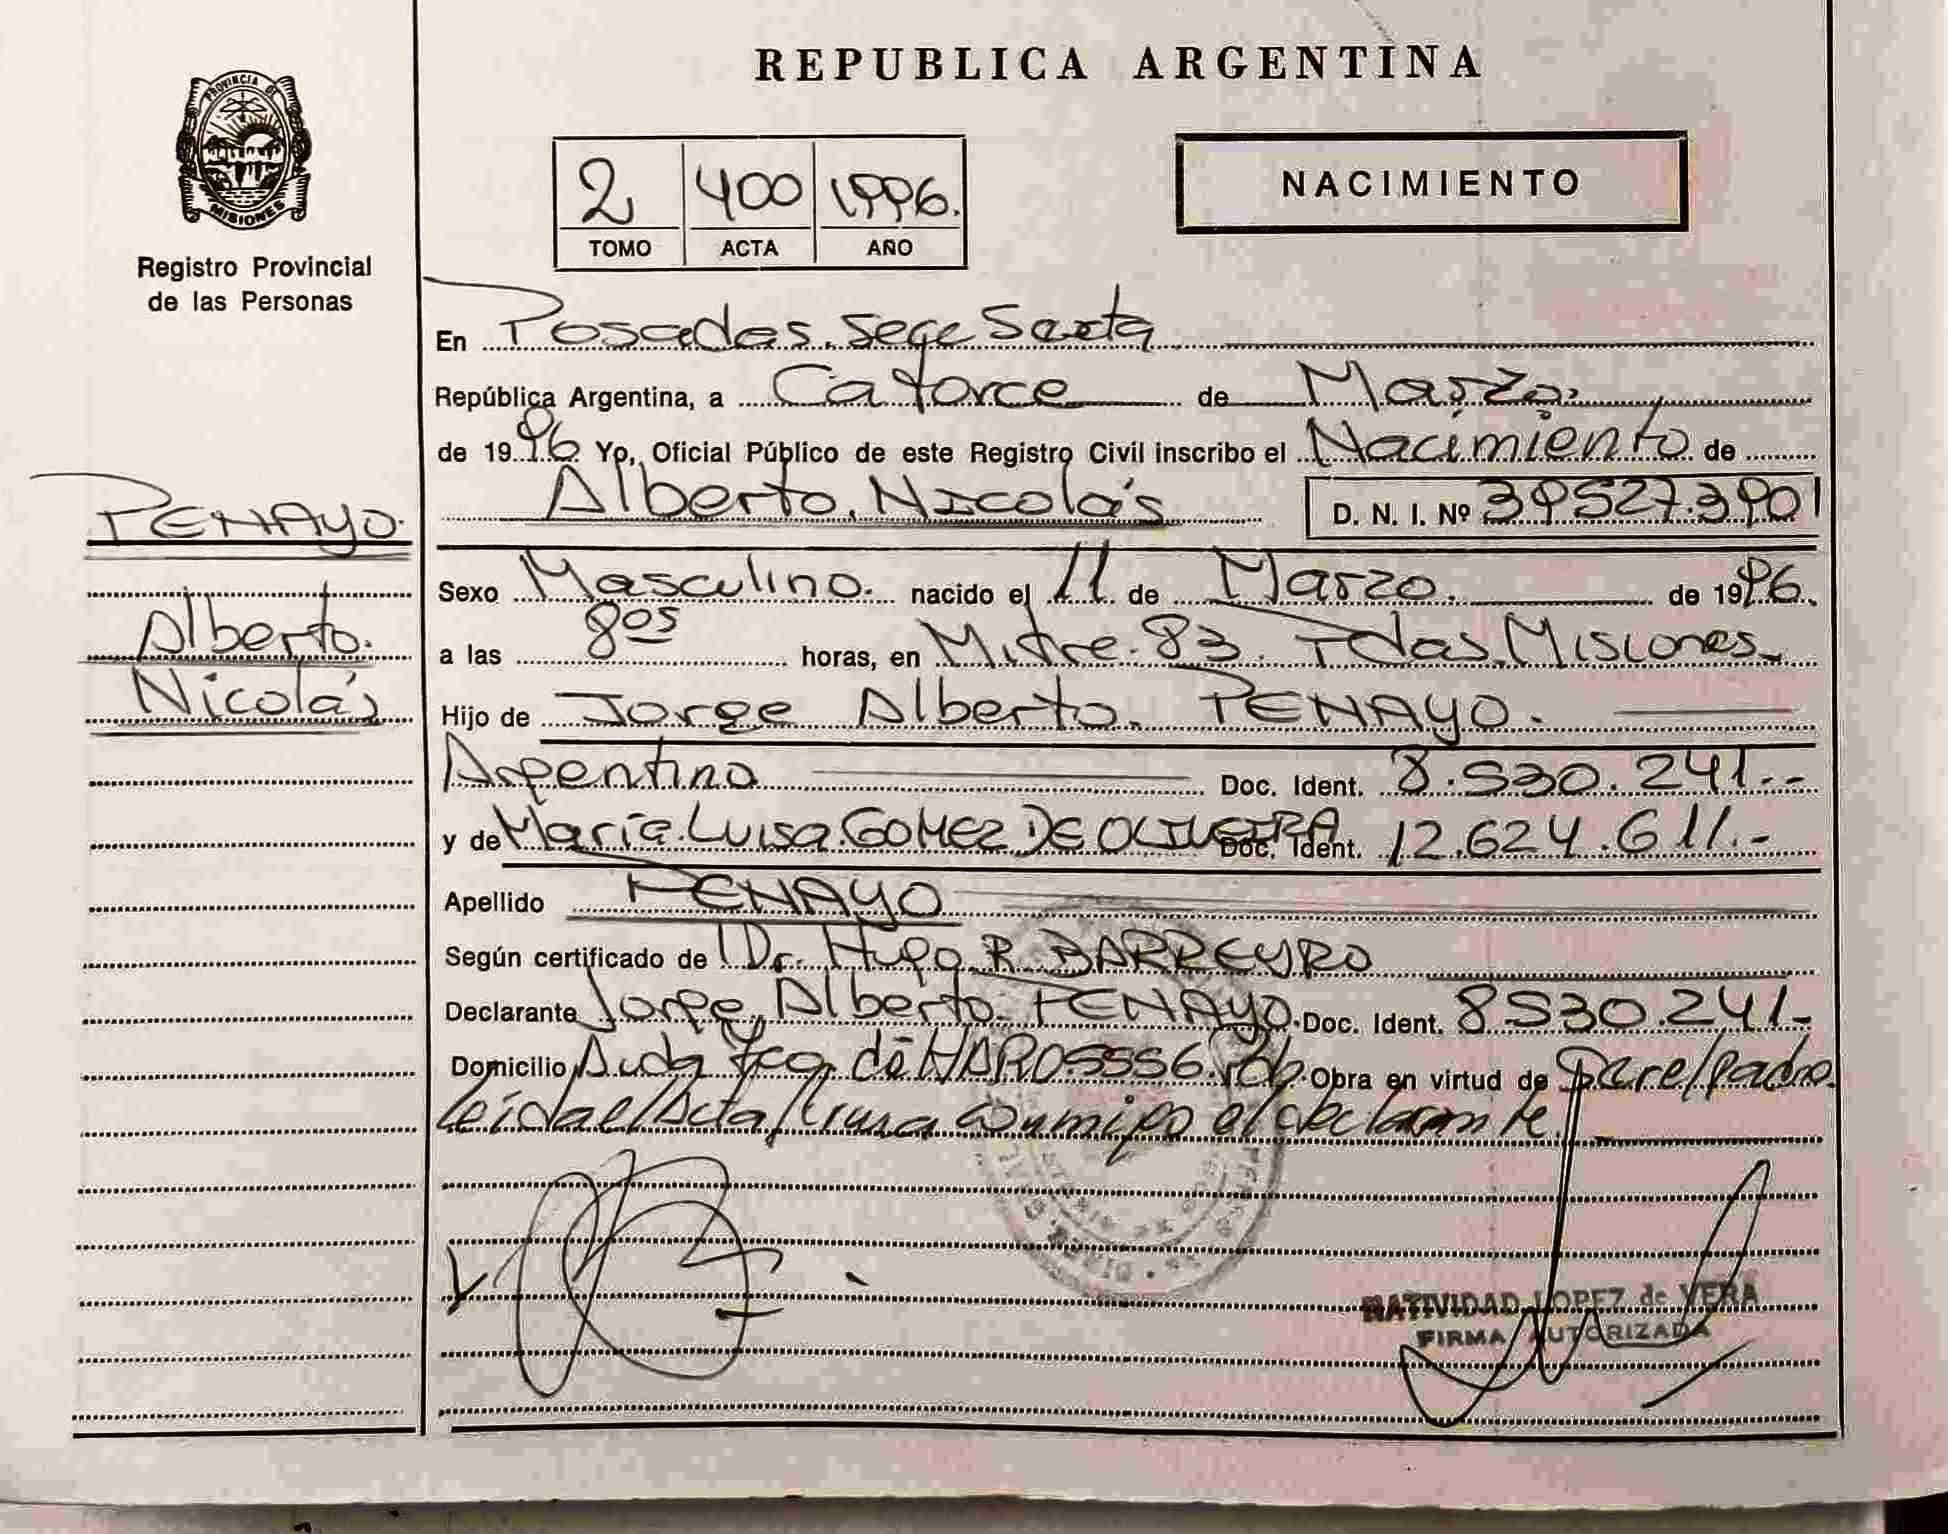 REPUBLICA ARGENTINA
PROVINCIA DE
MISIONES
Registro Provincial
de las Personas
2 400 1996.
TOMO ACTA AÑO
NACIMIENTO
En Posadas. Secc Sexta
República Argentina, a Catorce de Marzo.
de 1996 Yo, Oficial Público de este Registro Civil inscribo el Nacimiento de
Alberto. Nicolás D. N. I. Nº 39527.3901
PENAYO.
Alberto.
Nicolás
Sexo Masculino. nacido el 11 de Marzo. de 1996.
a las 8 05 horas, en Mitre. 83. Pdas. Misiones.
Hijo de Jorge Alberto. PENAYO.
Argentino Doc. Ident. 8.530.241.--
y de María. Luisa. GOMEZ DE OLIVEIRA Doc. Ident. 12.624.611.-
Apellido PENAYO
Según certificado de Dr. Hugo R. BARREYRO
Declarante Jorge. Alberto. PENAYO. Doc. Ident. 8530.241.-
Domicilio Avda Fco. de HARO 5556. Obra en virtud de Ser el padre.
Leida el Acta, firma conmigo el declarante.
NATIVIDAD LOPEZ de VERA
FIRMA AUTORIZADA